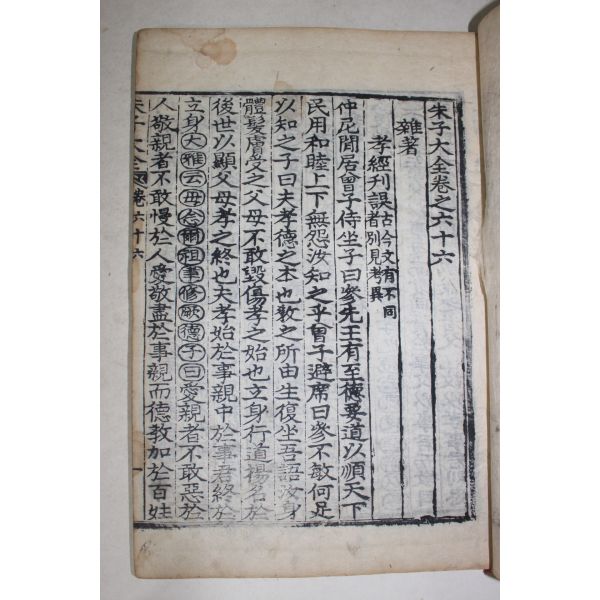 朱子大全卷之六十六
雜著
孝經刊誤古今文有不同者別見考異
仲尼閒居曾子侍坐子曰參先王有至德要道以順天下
民用和睦上下無怨汝知之乎曾子避席曰參不敏何足
以知之子曰夫孝德之本也敎之所由生復坐吾語汝身
體髮膚受之父母不敢毀傷孝之始也立身行道揚名於
後世以顯父母孝之終也夫孝始於事親中於事君終於
立身大雅云毋念爾祖聿修厥德子曰愛親者不敢惡於
人敬親者不敢慢於人愛敬盡於事親而德教加於百姓
朱子大全 卷六十六
一